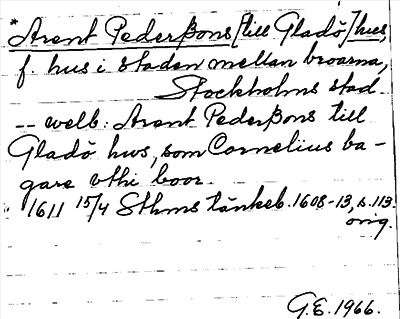 * Arent Pederßons [till Gladö] hus,
f. hus i staden mellan broarna,
Stockholms stad.
-- welb: Arent Pederßons till
Gladö hws, som Cornelius ba-
gare vthi boor.
1611 15/4 Sthms tänkeb. 1608-13, s. 113.
orig.
G.E. 1966.